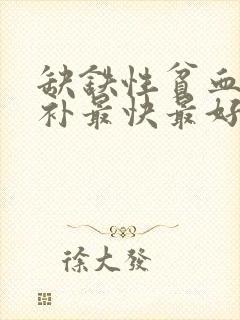 缺鉄性貧血
补最快最好
徐大發